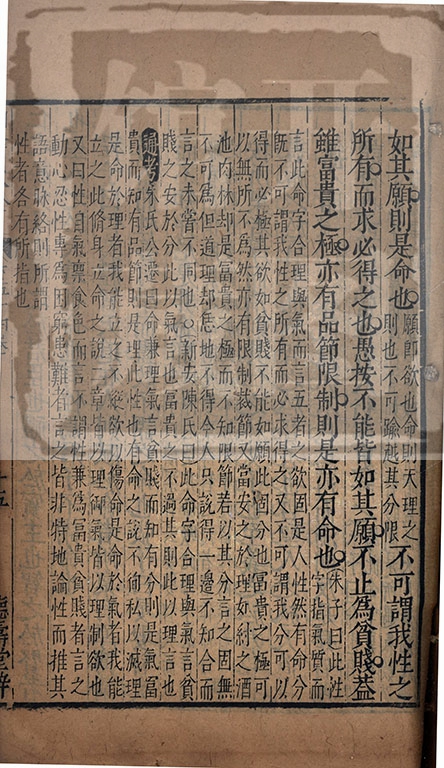 如其願則是命也願即欲也命則天理之則也不可踰越其分限不可謂我性之
所有而求必得之也愚按不能皆如其願不止為貧賤蓋
雖富貴之極亦有品節限制則是亦有命也朱子曰此性字指氣質而
言此命字合理與氣而言五者之欲固是人性然有命分
既不可謂我性之所有而必求得之又不可謂我分可以
得而必極其欲如貧賤不能如願此固分也富貴之極可
以無所不為然亦有限制裁節又當安之於理如紂之酒
池肉林却是富貴之極而不知限節若以其分言之固無
不可為但道理却恁地不得今人只說得一邊不知合而
言之未嘗不同也○新安陳氏曰此命字合理與氣言貧
賤之安於分此以氣言也富貴之不過其則此以理言也
通考朱氏公遷曰命兼理氣言貧賤而知有分則是氣富
貴而知有品節則是理此性也有命之說不徇私以滅理
是命於理者我能立之不縱欲以傷命是命於氣者我能
立之此脩身立命之說二章皆以理御氣皆以理制欲也
又曰性自氣稟食色而言不謂性兼為富貴貧賤者言之
動心忍性專為困窮患難者言之皆非特地論性而推其
語意脉絡則所謂
性者各有所指也